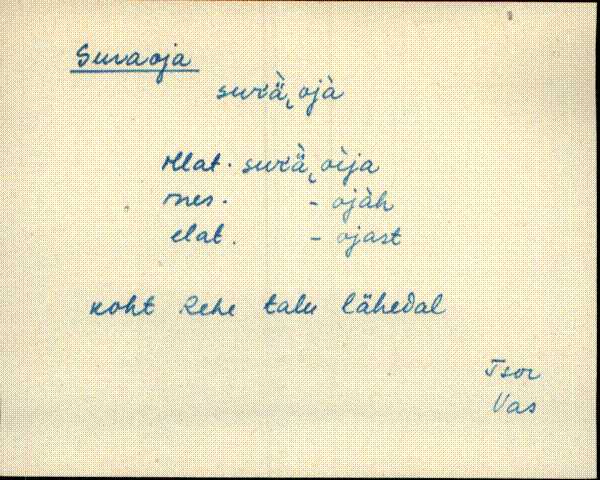 Suraoja
surà̤ ojà
illat. surà̤ oija
ines. - ojàh
elat. - ojast
koht Rehe talu lähedal
Tsor
Vas